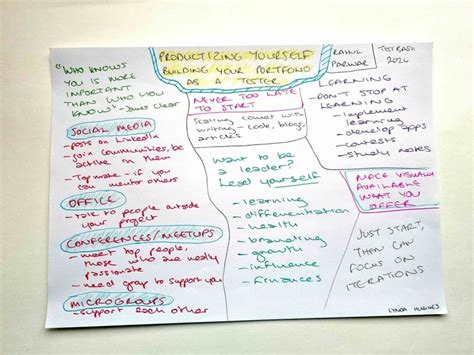 PRODUCTIZING YOURSELF
BUILDING YOUR PORTFOLIO
AS A TESTER
RAHUL
PARWAR
TESTBASH
2024
"WHO KNOWS
YOU IS MORE
IMPORTANT
THAN WHO YOU
KNOW" - James Clear
SOCIAL MEDIA
- posts on LinkedIn
- join communities, be
active in them
- Topmate - if you
can mentor others
OFFICE
- talk to people outside
your project
CONFERENCES/MEETUPS
- meet top people,
those who are really
passionate
- need group to support you
MICROGROUPS
- support each other
NEVER TOO LATE
TO START
Testing comes with
writing - code, blogs,
articles
Want to be
a leader?
Lead yourself
- learning
- differentiation
- health
- branding
- growth
- influence
- finances
LEARNING
- DON'T STOP AT
LEARNING
- implement
learning
- develop apps
- contests
- study notes
MAKE VISUALLY
AVAILABLE
WHAT YOU
OFFER
JUST START,
THEN CAN
FOCUS ON
ITERATIONS
LYNDA HUGHES